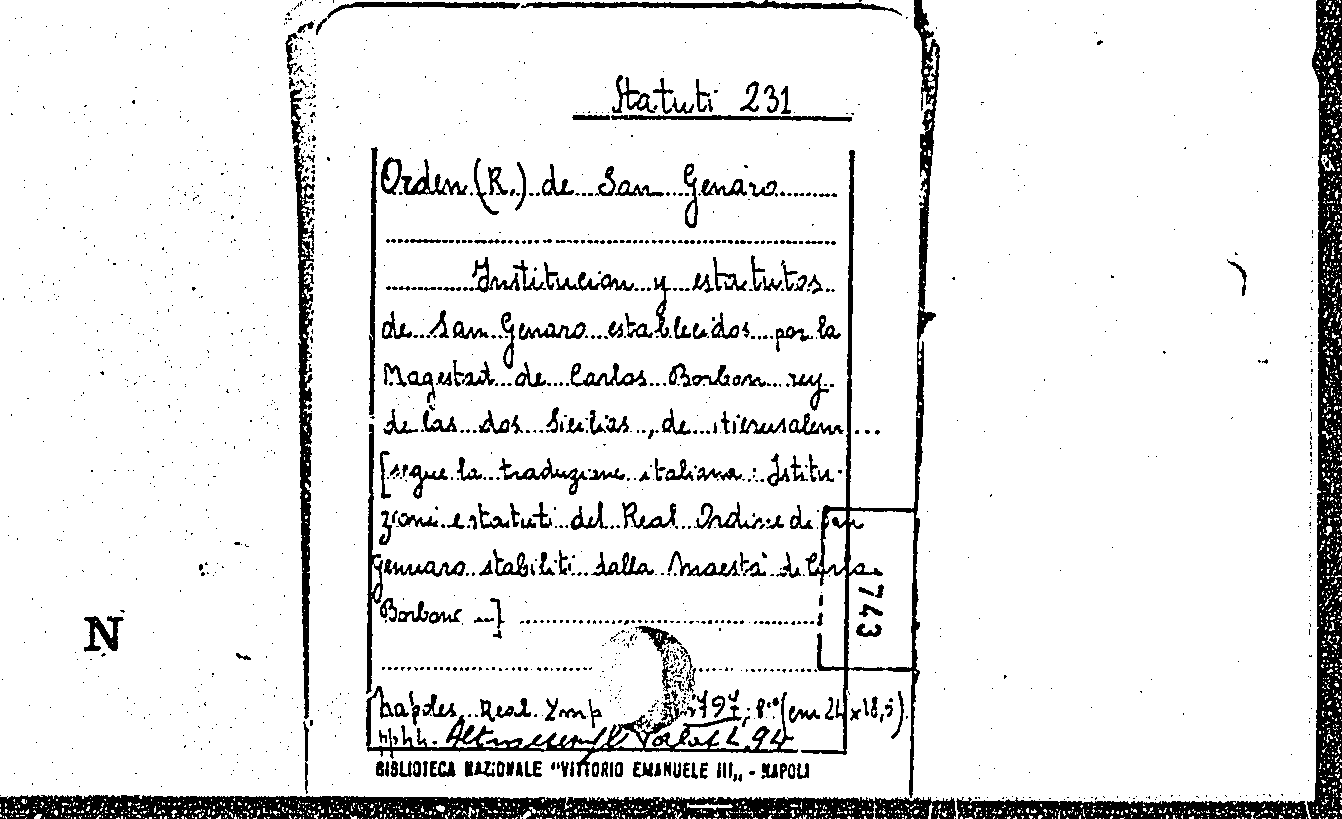 Statuti 231
Orden (R.) de San Genaro
Institucion y estatutos
de San Genaro establecidos por la
Magestad de Carlos Borbon rey
de las dos Sicilias, de Hierusalem...
[segue la traduzione italiana: Istitu-
zioni e statuti del Real Ordine di San
Gennaro stabiliti dalla Maestà di Carlo
Borbone ...]
1743
N
Napoles, Real Ymp 1797, 8° (cm 24 x 18,5)
BIBLIOTECA NAZIONALE "VITTORIO EMANUELE III„ - NAPOLI